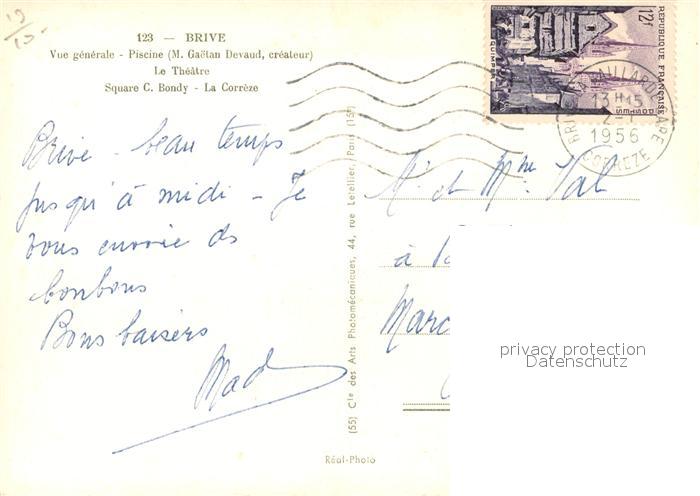 19
10-
123 — BRIVE
Vue générale - Piscine (M. Gaëtan Devaud, créateur)
Le Théâtre
Square C. Bondy - La Corrèze
12f
RÉPUBLIQUE FRANÇAISE
POSTES
QUIMPER
BRIVE-LA-GAILLARDE GARE
13H15
2-1
1956
CORREZE
Brive - beau temps
jusqu'à midi - Je
vous envoie des
bonbons
Bons baisers
Mad
(55) Cie des Arts Photomécaniques, 44, rue Letellier, Paris (15e)
Mr et Mme Val
à
Marc
privacy protection
Datenschutz
Réal-Photo